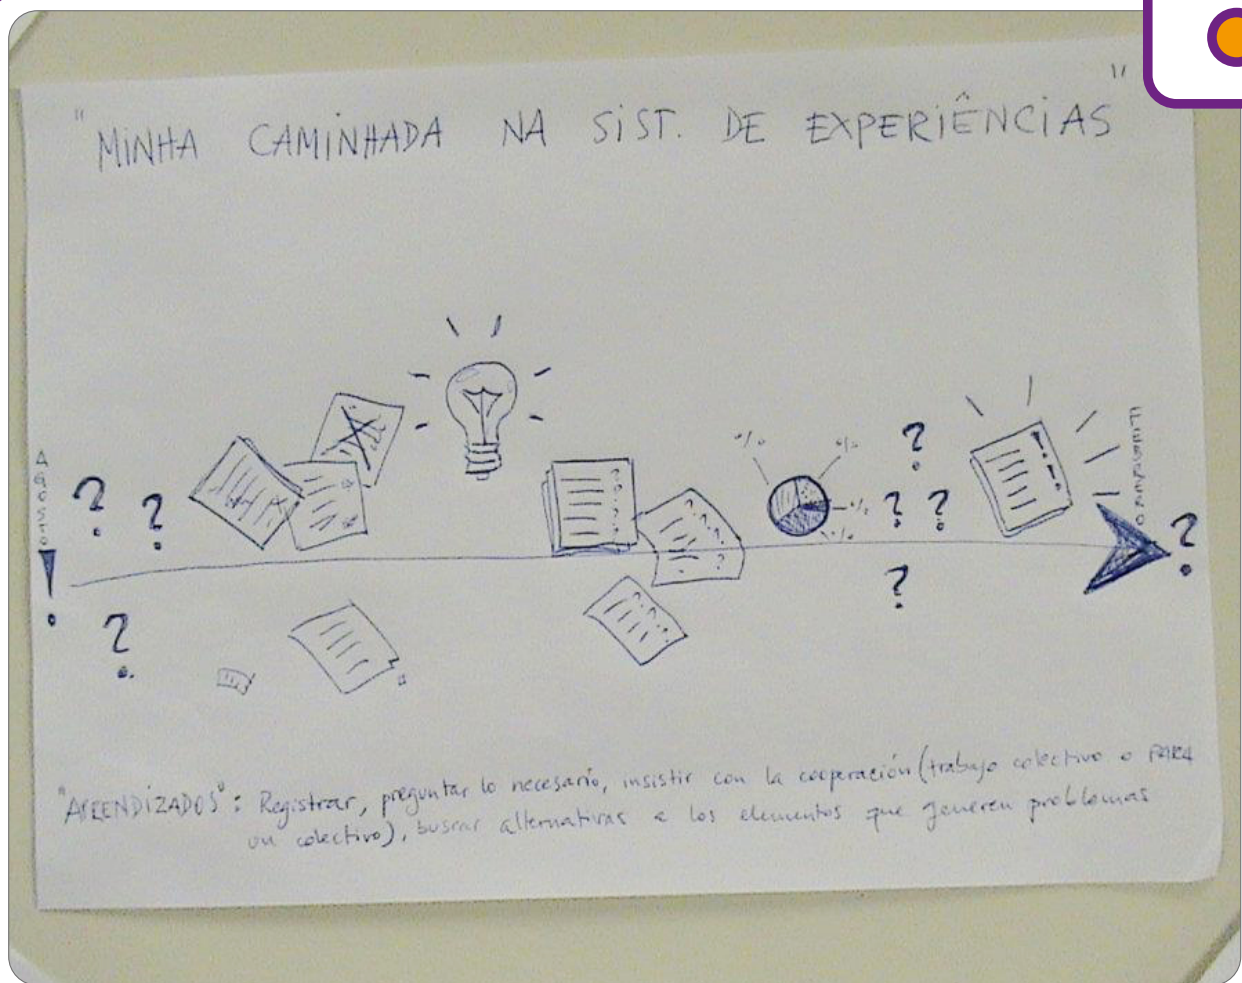 "MINHA CAMINHADA NA SIST. DE EXPERIÊNCIAS"
AGOSTO
? ? ?
% % % %
? ? ? ?
?
"APRENDIZADOS": Registrar, preguntar lo necesario, insistir con la cooperación (trabajo colectivo o PARA
un colectivo), buscar alternativas a los elementos que generen problemas